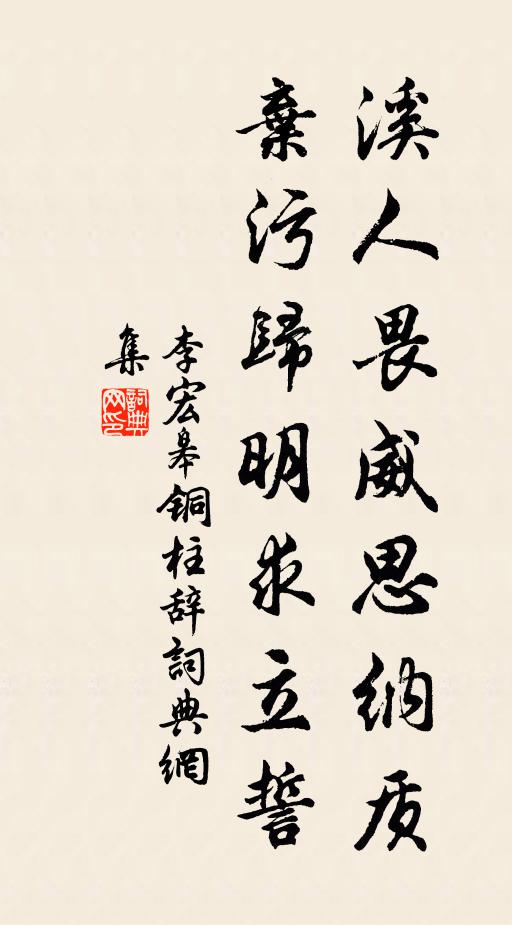 溪人畏威思纳质
棄污歸明求立誓
李宏皋铜柱辞詞典網
集
詞典网印